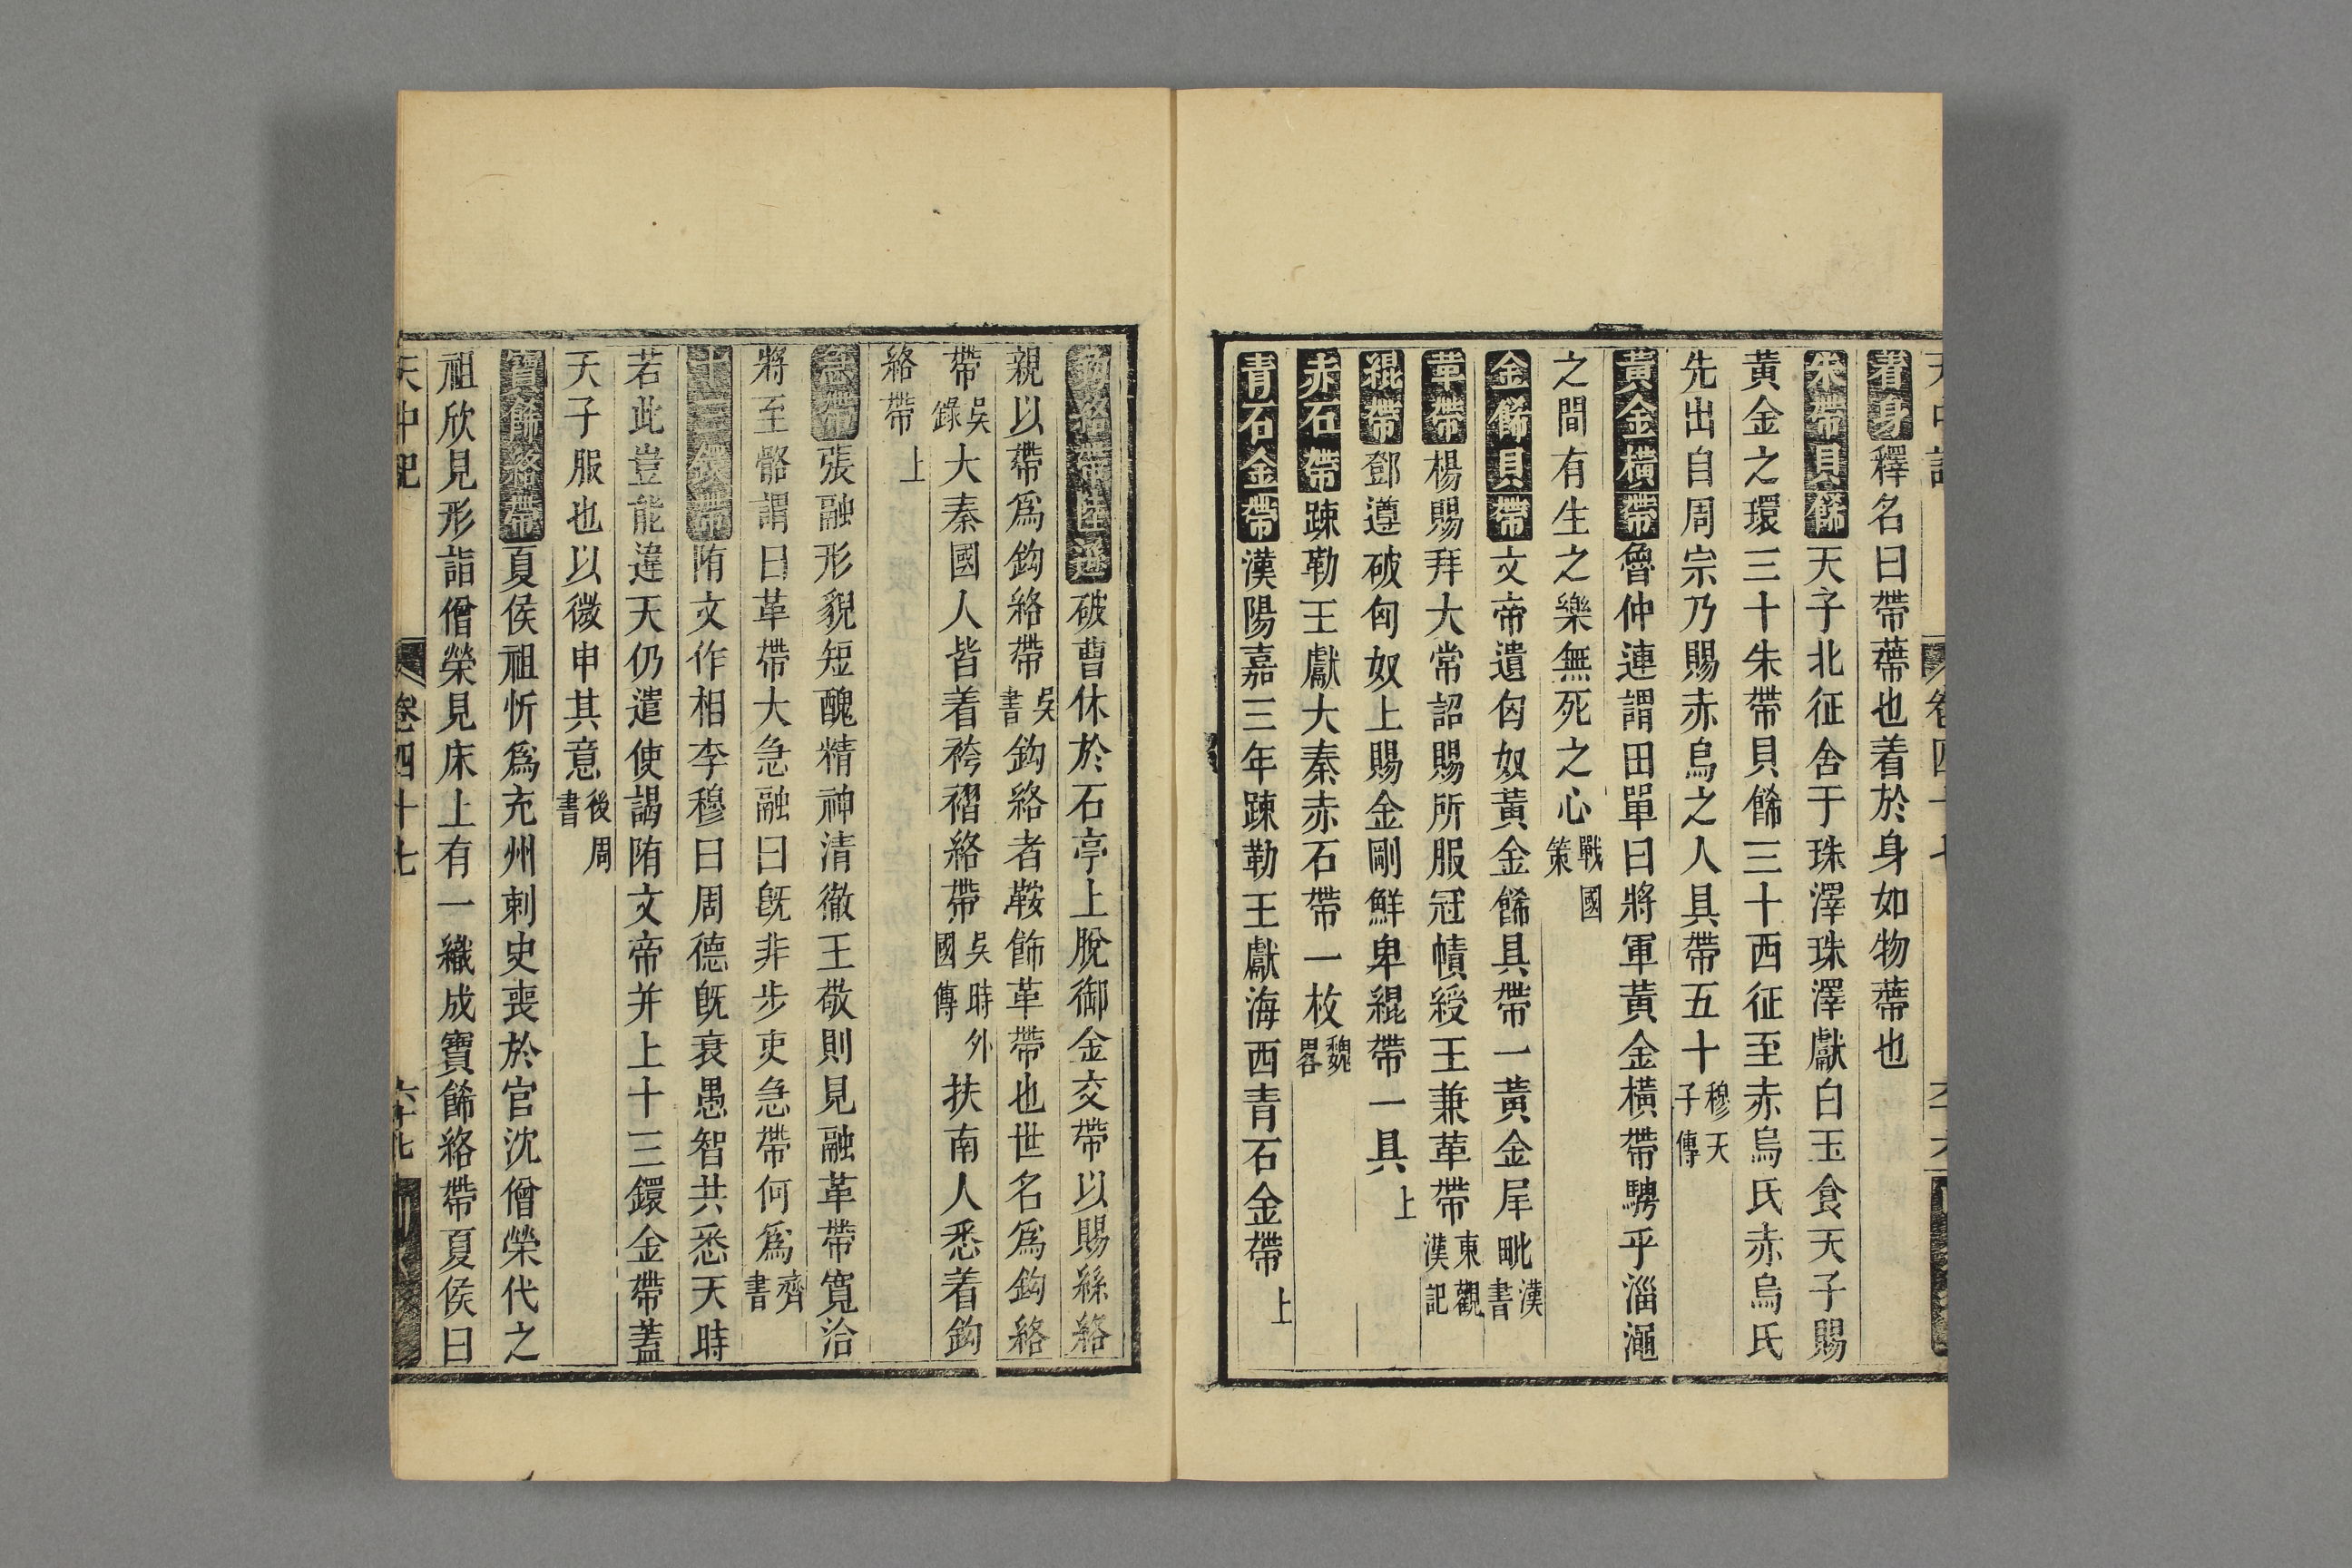 著身釋名曰帶蔕也着於身如物蔕也
朱帶貝餙天子北征舍于珠澤珠澤獻白玉食天子賜
黃金之環三十朱帶貝餙三十西征至赤烏氏赤烏氏
先出自周宗乃賜赤烏之人具帶五十穆天子傳
黃金橫帶魯仲連謂田單曰將軍黃金橫帶騁乎淄澠
之間有生之樂無死之心戰國策
金餙貝帶文帝遺匈奴黃金餙具帶一黃金犀毗漢書
革帶楊賜拜大常詔賜所服冠幘綬王兼革帶東觀漢記
緄帶鄧遵破匈奴上賜金剛鮮卑緄帶一具上
赤石帶踈勒王獻大秦赤石帶一枚魏畧
青石金帶漢陽嘉三年踈勒王獻海西青石金帶上
鈎絡帶陸遜破曹休於石亭上脫御金交帶以賜縣絡
親以帶爲鈎絡帶吳書鈎絡者鞍飾革帶也世名爲鈎絡
帶吳錄大秦國人皆着袴褶絡帶吳時外國傳扶南人悉着鈎
絡帶上
急帶張融形貌短醜精神清徹王敬則見融革帶寬治
將至髂謂曰革帶大急融曰旣非步吏急帶何爲齊書
十三鐶帶隋文作相李穆曰周德旣衰愚智共悉天時
若此豈能違天仍遣使謁隋文帝并上十三鐶金帶蓋
天子服也以微申其意後周書
寶餙絡帶夏侯祖忻爲充州刺史喪於官沈僧榮代之
祖欣見形詣僧榮見床上有一織成寶餙絡帶夏侯曰
天中記 卷四十七 六十七